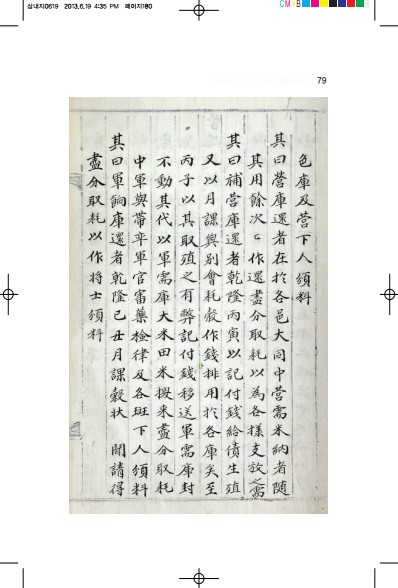 삼내지0619 2013.6.19 4:35 PM 페이지180
CM
B
79
色庫及營下人頒料
其曰營庫還者在於各邑大同中營需米納者隨
其用餘次〻作還盡分取耗以為各樣支放之需
其曰補營庫還者乾隆丙寅以記付錢給債生殖
又以月課與別會耗穀作錢排用於各庫矣至
丙子以其取殖之有弊記付錢移送軍需庫封
不動其代以軍需庫大米田米換來盡分取耗
中軍與帶率軍官審藥檢律及各班下人頒料
其曰軍餉庫還者乾隆己丑月課穀狀 聞請得
盡分取耗以作將士頒料